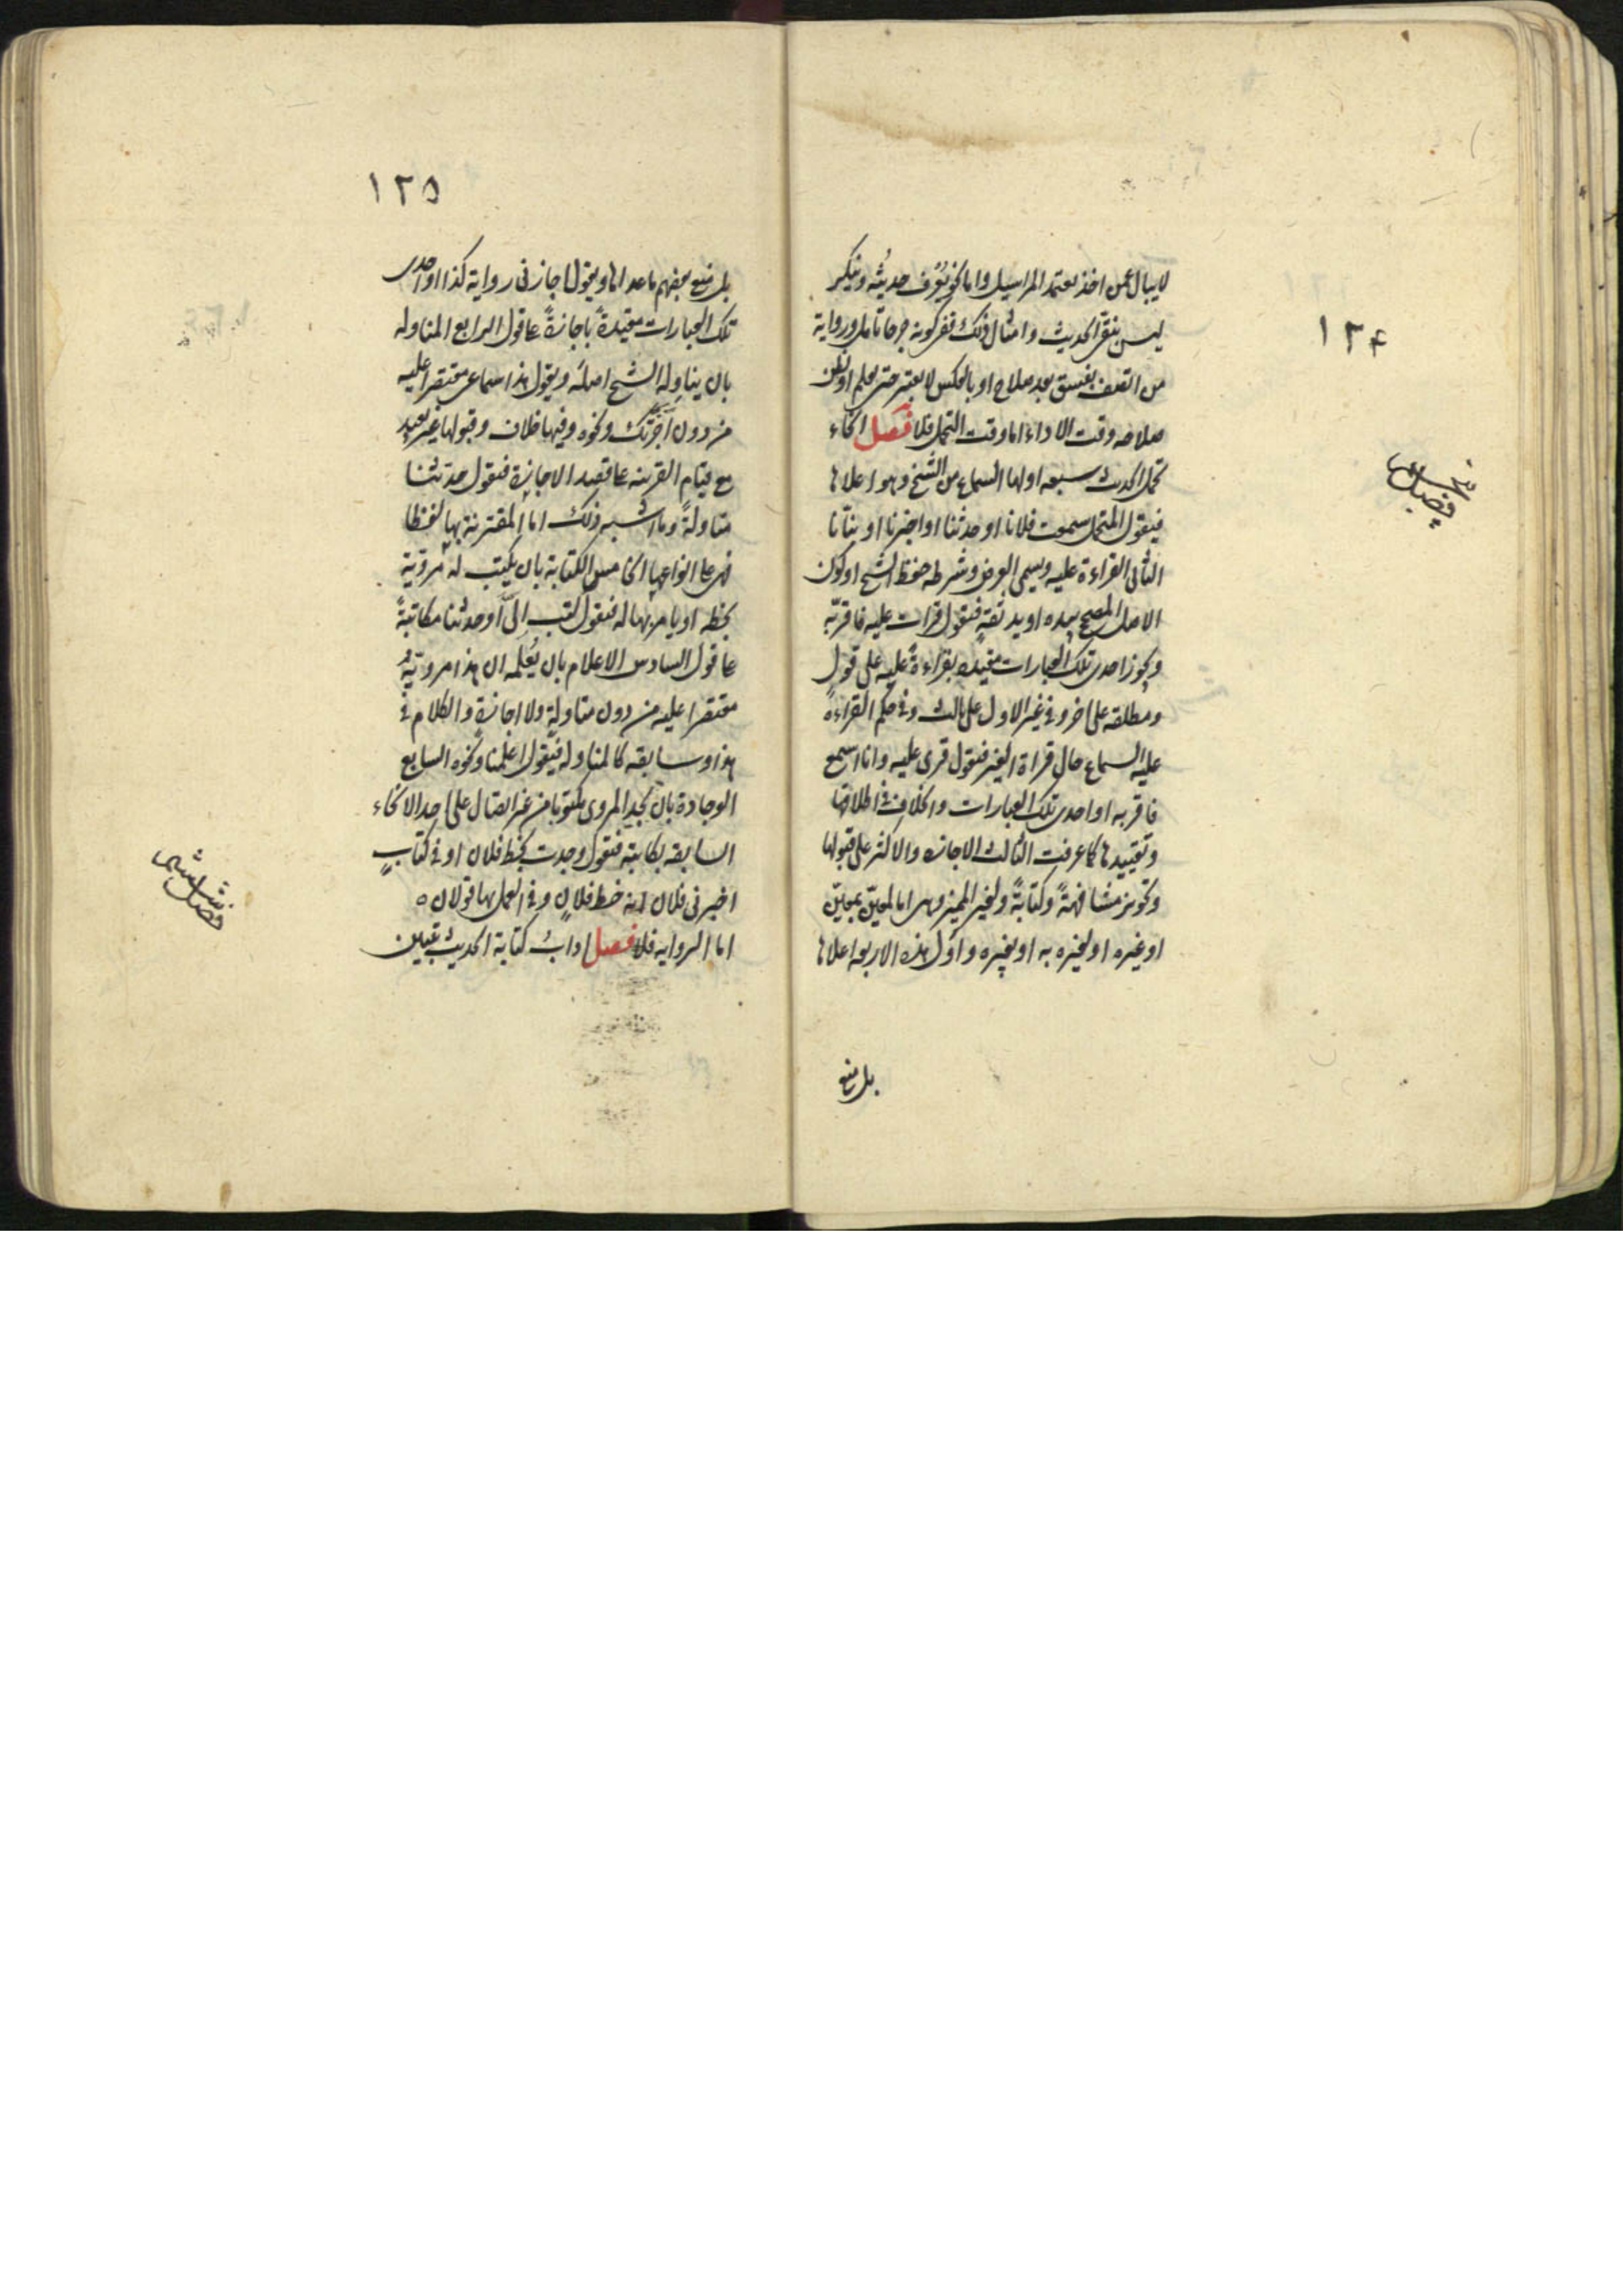 ١٢٤
لا يبالى عمن اخذ يعتمد المراسيل واما نحو يُعْرَف حديثُه وينكر
ليس بنقى الحديث وامثال ذلك ففى كونه جرحا تامل ورواية
من اتصف بفسق بعد صلاح او بالعكس لا يعتبر حتى يعلم او يظن
صلاحه وقت الاداء اما وقت التحمل فلا فصل انحاء
تحمل الحديث سبعه اولها السماع من الشيخ وهو اعلاها
فيقول المتحمل سمعت فلانا او حدثنا او اخبرنا او نبّأنا
الثانى القراءة عليه ويسمى العرض وشرطه حفظ الشيخ او كون
الاصل المصحح بيده او يد ثقةٍ فيقول قرات عليه فاقرّبه
ويجوز احدى تلك العبارات مقيده بقراءةً عليه على قول
ومطلقه على اخر وفى غير الاول على ثالث وفى حكم القراءة
عليه السماع حال قراءة الغير فيقول قرى عليه وانا اسمع
فاقربه او احدى تلك العبارات والخلاف فى اطلاقها
وتقييدها كما عرفت الثالث الاجازه والاكثر على قبولها
وتجوز مشافهةً وكتابةً ولغير المميز وهى اما لمعيّن بمعيّن
او غيره او لغيره به او بغيره واوّل هذه الاربعه اعلاها
بل منع
فصل خامس
١٢٥
بل منع بعضهم ما عداها ويقول اجازنى رواية كذا او احدى
تلك العبارات مقيّدةً باجازةً على قول الرابع المناوله
بان يناوله الشيخ اصلَه ويقول هذا سماعى مقتصرا عليه
من دون اَجَزْتُك ونحوه وفيها خلاف وقبولها غير بعيد
مع قيام القرينه على قصد الاجازة فيقول حدثنا
مناولةً وما اشبه ذلك اما المقترنة بها لفظا
فهى على انواعها الخامس الكتابة بان يكتب له مرويّه
بخطه او يامر بها له فيقول كتب الىّ او حدثنا مكاتبةً
على قول السادس الاعلام بان يُعْلمه ان هذا مرويّهُ
مقتصرا عليه من دون مناولةٍ ولا اجازةٍ والكلام فى
هذا وسابقه كالمناوله فيقول اعلمنا ونحوه السابع
الوجادة بان يجد المروى مكتوبا من غير اتصال على احد الانحاء
السابقه بكاتبه فيقول وجدت بخط فلان او فى كتابٍ
اخبرنى فلان انه خط فلانٍ وفى العمل بها قولان ه
اما الروايه فلا فصل اداب كتابة الحديث تبيين
فصل سادس